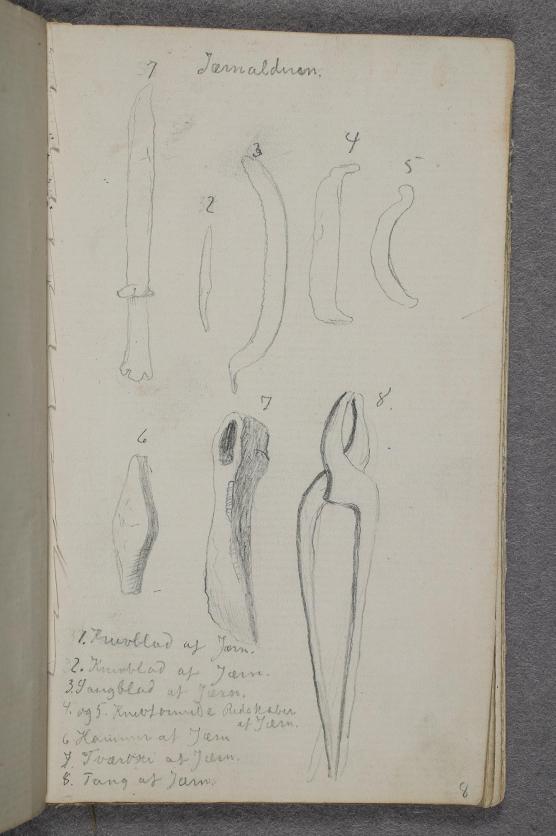 Jærnalderen.
1
2
3
4
5
6
7
8.
1. Knivblad af Jærn.
2. Knivblad af Jærn.
3. Savgblad af Jærn.
4. og 5. Knivformede Redskaber
af Jærn.
6 Hammer af Jærn
7. Tværøxe af Jærn.
8. Tang af Jærn.
8